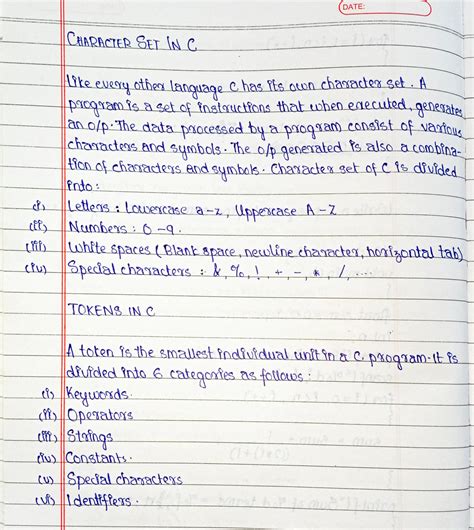 DATE:
CHARACTER SET IN C
Like every other language C has its own character set. A
program is a set of instructions that when executed, generates
an o/p. The data processed by a program consist of various
characters and symbols. The o/p generated is also a combina-
tion of characters and symbols. Character set of C is divided
into:
(i) Letters: Lowercase a-z, Uppercase A-Z
(ii) Numbers: 0-9.
(iii) White spaces (Blank space, newline character, horizontal tab)
(iv) Special characters: &, %, !, +, -, *, /, ...
TOKENS IN C
A token is the smallest individual unit in a C program. It is
divided into 6 categories as follows:
(i) Keywords.
(ii) Operators
(iii) Strings
(iv) Constants.
(v) Special characters
(vi) Identifiers.